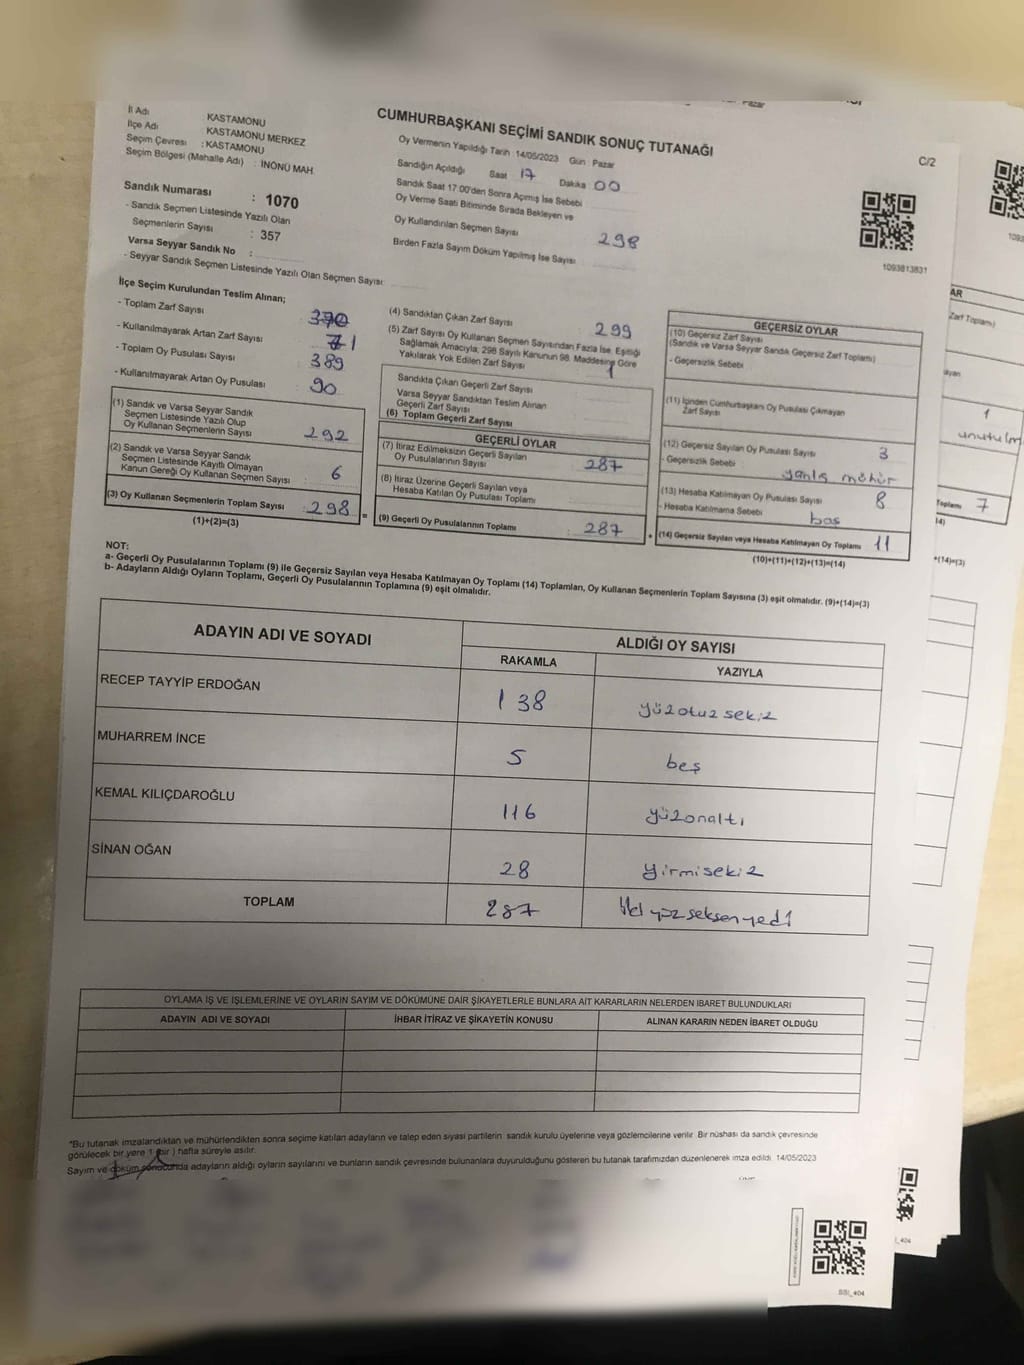 İl Adı : KASTAMONU
İlçe Adı : KASTAMONU MERKEZ
Seçim Çevresi : KASTAMONU
Seçim Bölgesi (Mahalle Adı) : İNÖNÜ MAH.
Sandık Numarası : 1070
- Sandık Seçmen Listesinde Yazılı Olan
Seçmenlerin Sayısı : 357
Varsa Seyyar Sandık No :
- Seyyar Sandık Seçmen Listesinde Yazılı Olan Seçmen Sayısı
CUMHURBAŞKANI SEÇİMİ SANDIK SONUÇ TUTANAĞI
C/2
Oy Vermenin Yapıldığı Tarih : 14/05/2023 Gün : Pazar
Sandığın Açıldığı Saat 17 Dakika 00
Sandık Saat 17:00'den Sonra Açımış İse Sebebi
Oy Verme Saati Bitiminde Sırada Bekleyen ve
Oy Kullandırılan Seçmen Sayısı 298
Birden Fazla Sayım Döküm Yapılmış İse Sayısı
1093813831
İlçe Seçim Kurulundan Teslim Alınan;
- Toplam Zarf Sayısı 370
- Kullanılmayarak Artan Zarf Sayısı 71
- Toplam Oy Pusulası Sayısı 389
- Kullanılmayarak Artan Oy Pusulası 90
(1) Sandık ve Varsa Seyyar Sandık
Seçmen Listesinde Yazılı Olup
Oy Kullanan Seçmenlerin Sayısı 292
(2) Sandık ve Varsa Seyyar Sandık
Seçmen Listesinde Kayıtlı Olmayan
Kanun Gereği Oy Kullanan Seçmen Sayısı : 6
(3) Oy Kullanan Seçmenlerin Toplam Sayısı : 298
(1)+(2)=(3)
=
(4) Sandıktan Çıkan Zarf Sayısı 299
(5) Zarf Sayısı Oy Kullanan Seçmen Sayısından Fazla İse, Eşitliği
Sağlamak Amacıyla, 298 Sayılı Kanunun 98. Maddesine Göre
Yakılarak Yok Edilen Zarf Sayısı 1
Sandıkta Çıkan Geçerli Zarf Sayısı
Varsa Seyyar Sandıktan Teslim Alınan
Geçerli Zarf Sayısı
(6) Toplam Geçerli Zarf Sayısı
GEÇERLİ OYLAR
(7) İtiraz Edilmeksizin Geçerli Sayılan
Oy Pusulalarının Sayısı 287
(8) İtiraz Üzerine Geçerli Sayılan veya
Hesaba Katılan Oy Pusulası Toplamı
(9) Geçerli Oy Pusulalarının Toplamı : 287
+
GEÇERSİZ OYLAR
(10) Geçersiz Zarf Sayısı
(Sandık ve Varsa Seyyar Sandık Geçersiz Zarf Toplamı)
- Geçersizlik Sebebi
(11) İçinden Cumhurbaşkanı Oy Pusulası Çıkmayan
Zarf Sayısı
(12) Geçersiz Sayılan Oy Pusulası Sayısı 3
- Geçersizlik Sebebi yanlış mühür
(13) Hesaba Katılmayan Oy Pusulası Sayısı 8
- Hesaba Katılmama Sebebi boş
(14) Geçersiz Sayılan veya Hesaba Katılmayan Oy Toplamı 11
(10)+(11)+(12)+(13)=(14)
NOT:
a- Geçerli Oy Pusulalarının Toplamı (9) ile Geçersiz Sayılan veya Hesaba Katılmayan Oy Toplamı (14) Toplamları, Oy Kullanan Seçmenlerin Toplam Sayısına (3) eşit olmalıdır. (9)+(14)=(3)
b- Adayların Aldığı Oyların Toplamı, Geçerli Oy Pusulalarının Toplamına (9) eşit olmalıdır.
ADAYIN ADI VE SOYADI
ALDIĞI OY SAYISI
RAKAMLA YAZIYLA
RECEP TAYYİP ERDOĞAN 138 yüzotuz sekiz
MUHARREM İNCE 5 beş
KEMAL KILIÇDAROĞLU 116 yüzonaltı
SİNAN OĞAN 28 yirmisekiz
TOPLAM 287 ikiyüzseksenyedi
OYLAMA İŞ VE İŞLEMLERİNE VE OYLARIN SAYIM VE DÖKÜMÜNE DAİR ŞİKAYETLERLE BUNLARA AİT KARARLARIN NELERDEN İBARET BULUNDUKLARI
ADAYIN ADI VE SOYADI İHBAR İTİRAZ VE ŞİKAYETİN KONUSU ALINAN KARARIN NEDEN İBARET OLDUĞU
*Bu tutanak imzalandıktan ve mühürlendikten sonra seçime katılan adayların ve talep eden siyasi partilerin sandık kurulu üyelerine veya gözlemcilerine verilir. Bir nüshası da sandık çevresinde
görülecek bir yere 1 (bir) hafta süreyle asılır.
Sayım ve döküm sonucunda adayların aldığı oyların sayılarını ve bunların sandık çevresinde bulunanlara duyurulduğunu gösteren bu tutanak tarafımızdan düzenlenerek imza edildi. 14/05/2023
SSI_404
Pazar
1093
AR
Zarf Toplamı)
ayan
1
Toplamı 7
14)
+(14)=(3)
_404